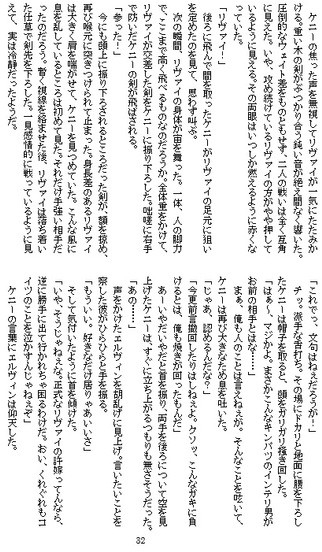 ケニーの焦った声を無視してリヴァイが一気にたたみか
ける。重い木の剣がぶつかり合う鈍い音が絶え間なく響いた。
圧倒的なウェイト差をものともせず、二人の戦いは全く互角
に見えた。いや、攻め続けているリヴァイの方がやや押して
いるように見える。その両眼はいつしか燃えるように赤くな
っていた。
「リヴァイ!」
後ろに飛んで間を取ったケニーがリヴァイの足元に狙い
を定めたのを見て、思わず叫ぶ。
次の瞬間、リヴァイの身体が宙を舞った。一体、人の脚力
で、ここまで高く飛べるものなのだろうか。全体重をかけて、
リヴァイが交差した剣をケニーに振り下ろした。咄嗟に右手
で防いだケニーの剣が飛ばされる。
「参った!」
今にも頭上に振り下ろされるところだった剣が、顔を掠め、
再び喉元に突きつけられて止まった。身長差のあるリヴァイ
は大きく肩を喘がせて、ケニーを見つめていた。こんな風に
息を乱しているところは初めて見る。それだけ手強い相手だ
ったのだろう。暫く視線を絡ませた後、リヴァイは落ち着い
た仕草で剣先を下ろした。一見感情的に戦っているように見
えて、実は冷静だったようだ。
「これでっ、文句はねぇだろうが!」
チッ、派手な舌打ち。その場にドカリと地面に腰を下ろし
たケニーは帽子を取ると、頭をガリガリ掻き回した。
「はぁ～、マジかよ。まさかこんなキンパツのインテリ男が
お前の相手とはな……」
まぁ、俺も人のことは言えねぇが。そんなことを呟いて、
ケニーは再び大きなため息を吐いた。
「じゃあ、認めるんだな?」
「今更前言撤回したりはしねぇよ。クソッ、こんなガキに負
けるとは、俺も焼きが回ったもんだ」
あーいやだいやだと首を振り、両手を後ろについて空を見
上げたケニーは、すぐに立ち上がるつもりも無さそうだった。
「あの……」
声をかけたエルヴィンを胡乱げに見上げ、言いたいことを
察した彼がひらひらと手を振る。
「もういい。好きなだけ居りゃあいいさ」
そして気付いたように首を傾げた。
「いや、そうじゃねぇな。正式なリヴァイの許嫁ってんなら、
逆に勝手に出て行かれちゃ困るわけだ。おい、くれぐれもコ
イツのことを泣かすんじゃねぇぞ」
ケニーの言葉にエルヴィンは仰天した。
32